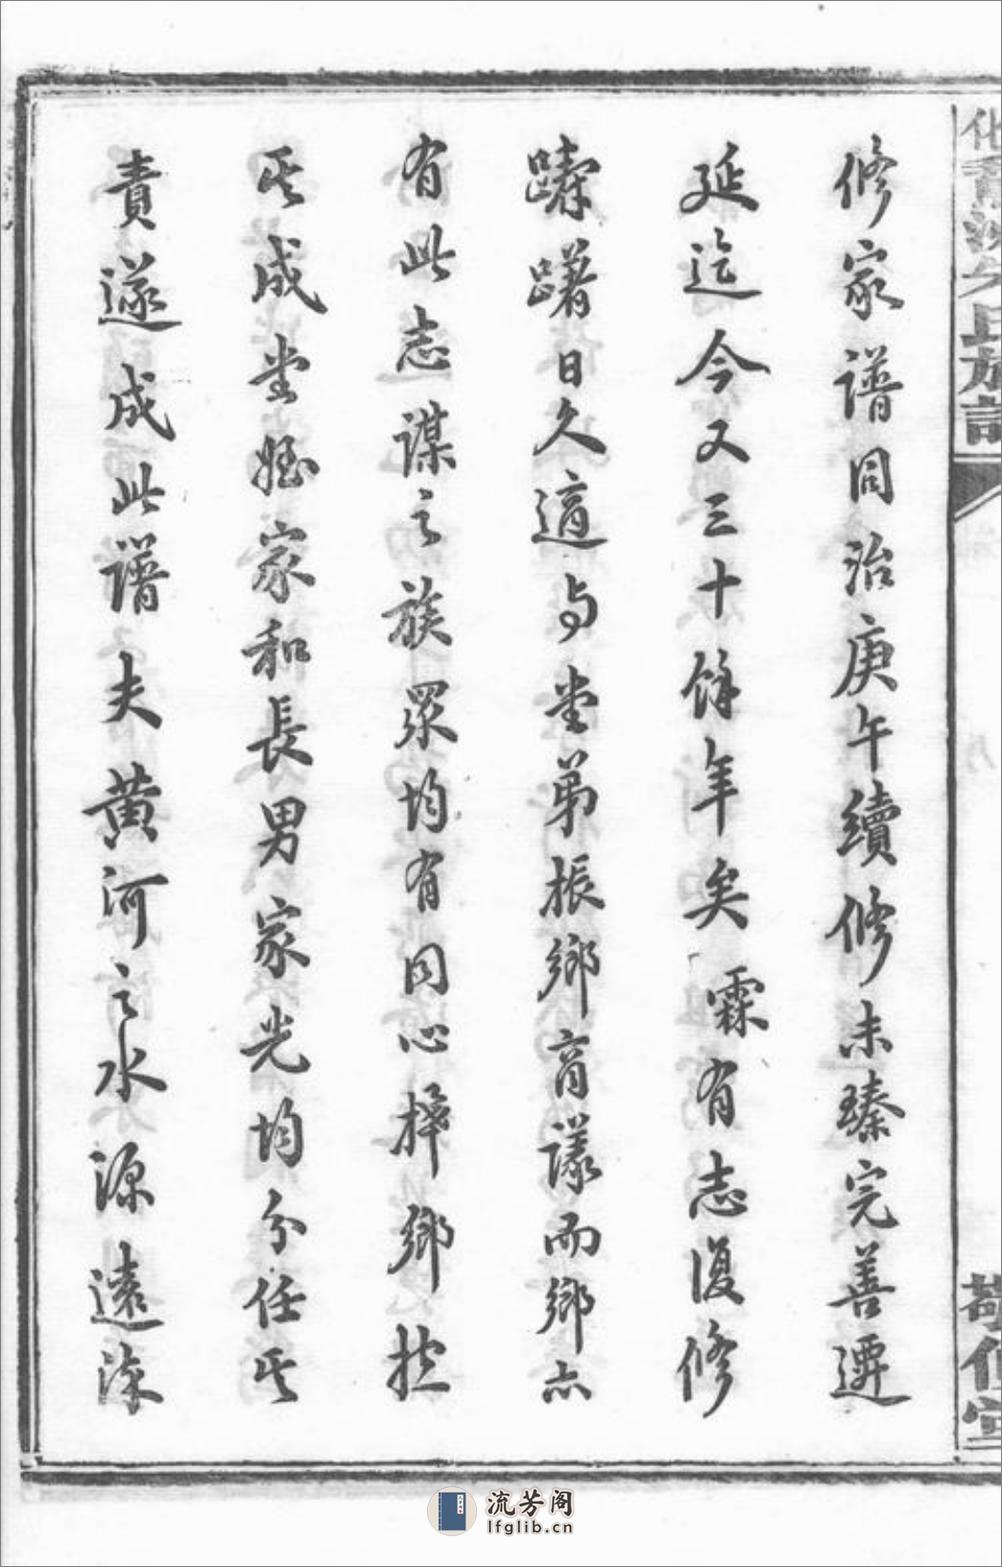 族譜
修家譜同治庚午續修未臻完善遷
延迄今又三十餘年矣霖有志復修
躊躇日久適与堂弟振鄉商議而鄉亦
有此志謀之族眾均有同心鄉
其成堂姪家和長男家光均分任其
責遂成此譜夫黃河之水源遠深
流芳阁
lfglib.cn